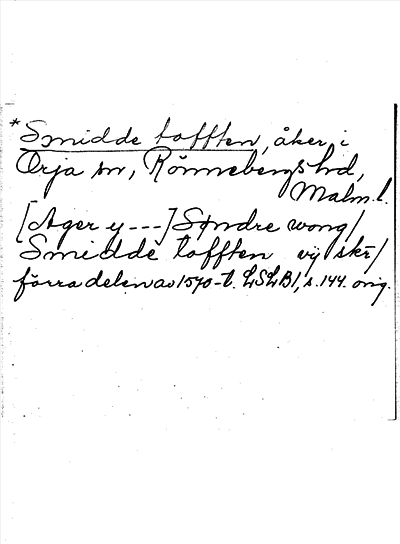 *Smidde tofften, åker i
Örja sn, Rönnebergs hd,
Malm. l.
[Ager y ---] Søndre wong/
Smidde tofften vij skr/
förra delen av 1570-t. LSLB1, s. 144. orig.